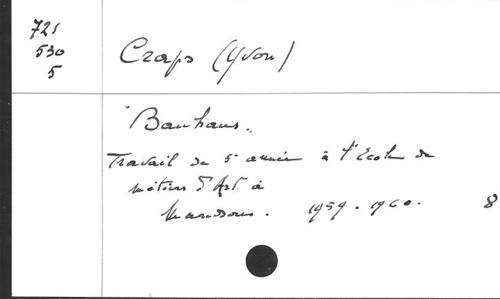 721
530
5
Craps (Yvon)
Bauhaus.
Travail de 5e année à l'Ecole de
métiers d'Art à
Maredsous. 1959-1960. 8